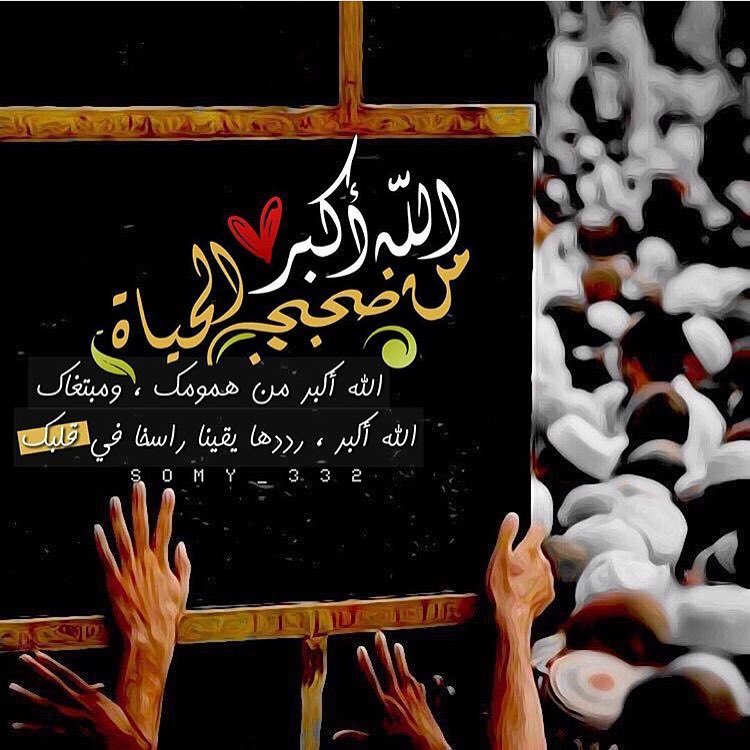 الله أكبر
من ضجيج الحياة
الله أكبر من همومك ، ومبتغاك
الله أكبر ، رددها يقينا راسخا في قلبك
SOMY_332